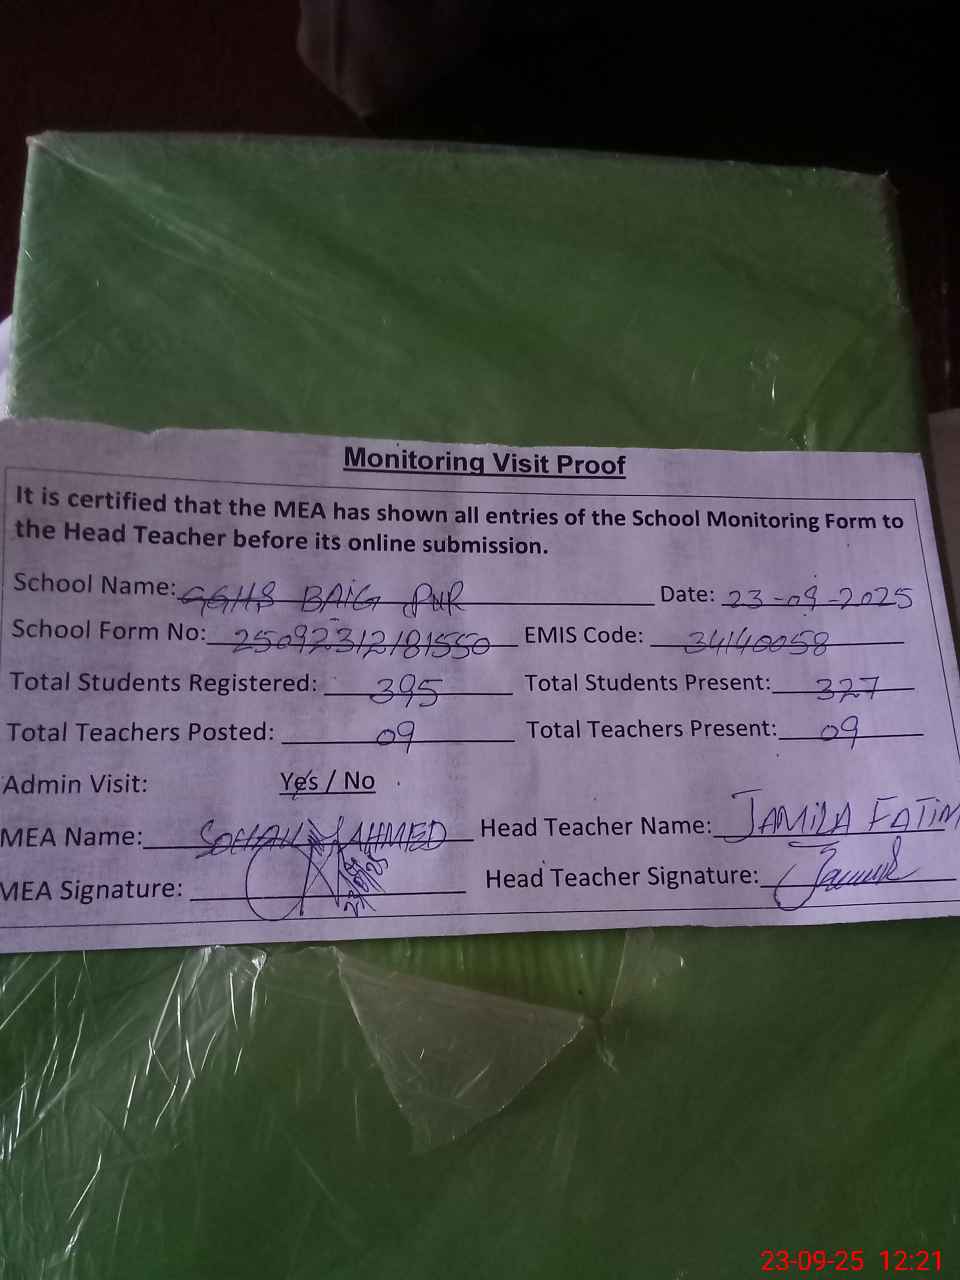 Monitoring Visit Proof
It is certified that the MEA has shown all entries of the School Monitoring Form to
the Head Teacher before its online submission.
School Name: GGHS BAIG PUR Date: 23-09-2025
School Form No: 25092312181550 EMIS Code: 34140058
Total Students Registered: 395 Total Students Present: 327
Total Teachers Posted: 09 Total Teachers Present: 09
Admin Visit: Yes / No
MEA Name: AHMED Head Teacher Name: JAMILA FATIM
MEA Signature: 23/09/25 Head Teacher Signature:
23-09-25 12:21